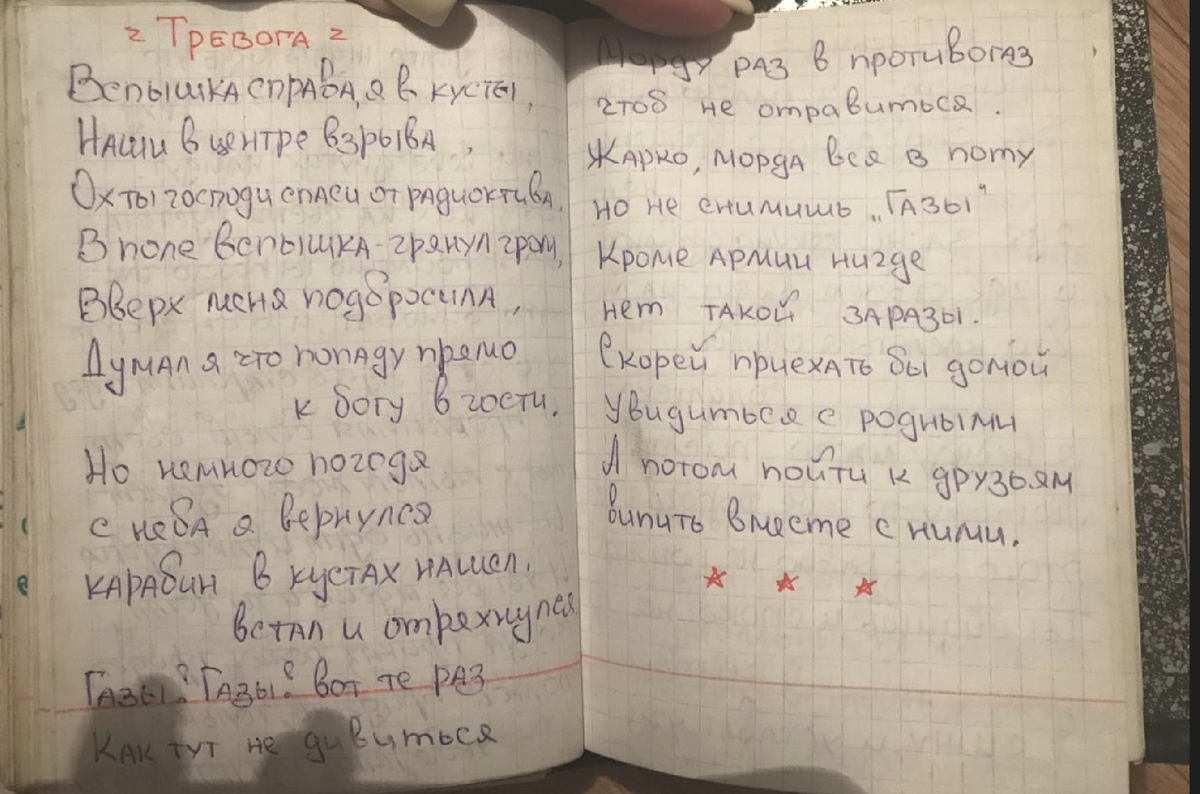 ~ Тревога ~
Вспышка справа, я в кусты,
Наши в центре взрыва,
Ох ты господи спаси от радиоктива.
В поле вспышка - грянул гром,
Вверх меня подбросила,
Думал я что попаду прямо
к богу в гости.
Но немного погодя
с неба я вернулся
карабин в кустах нашел.
встал и отряхнулся
Газы? Газы? вот те раз
Как тут не дивиться
Морду раз в противогаз
чтоб не отравиться.
Жарко, морда вся в поту
но не снимишь „Газы"
Кроме армии нигде
нет такой заразы.
Скорей приехать бы домой
Увидиться с родными
А потом пойти к друзьям
випить вместе с ними.